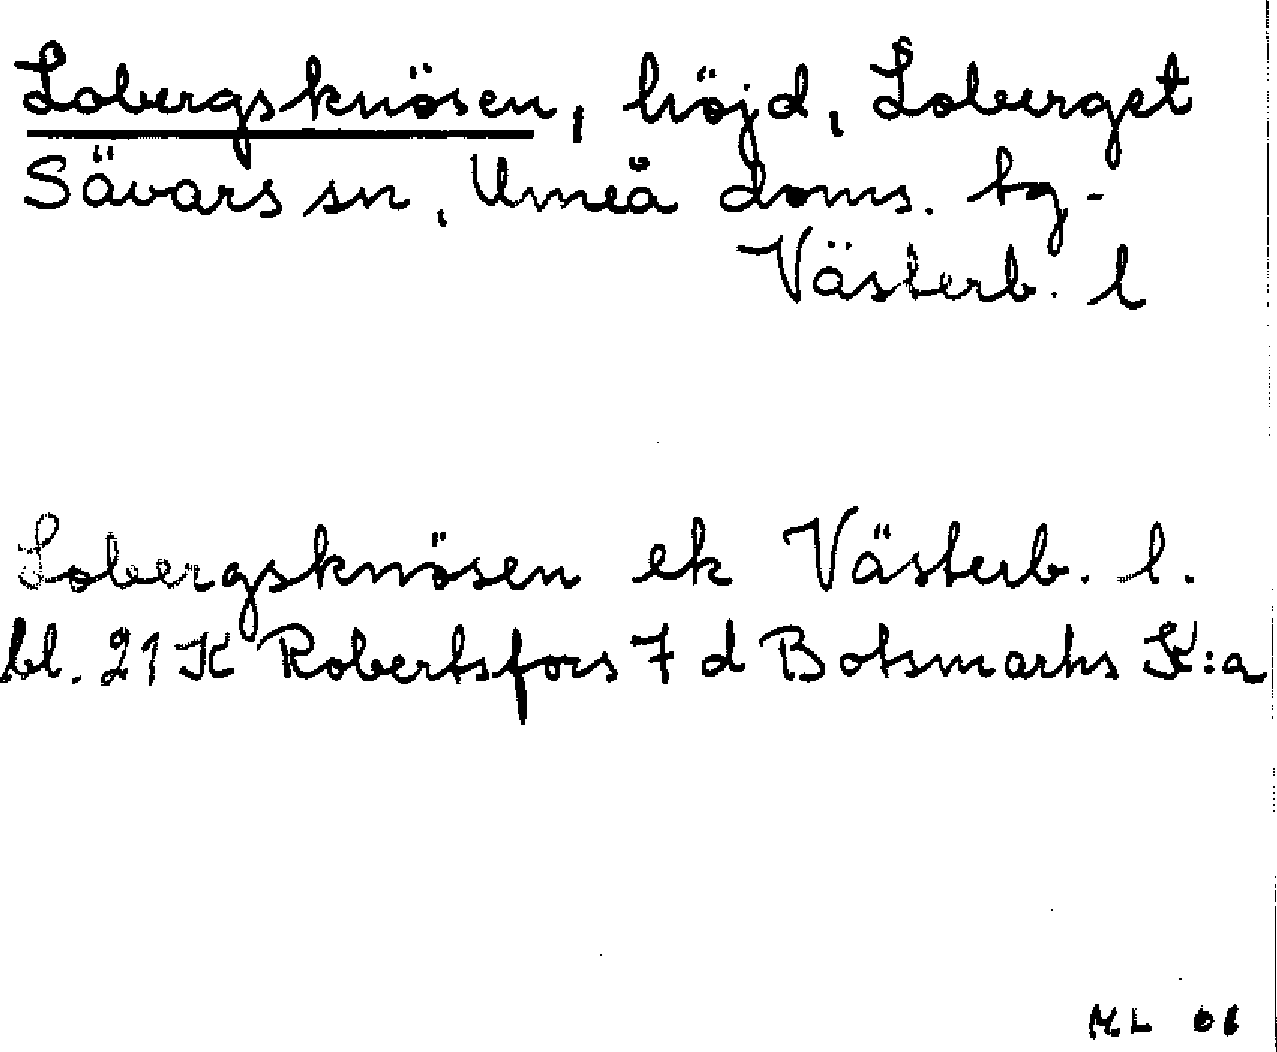 Lobergsknösen, höjd, Loberget
Sävars sn, Umeå doms. tg-
Västerb. l
Lobergsknösen ek Västerb. l.
bl. 21 K Robertsfors 7 d Botsmarks K:a
M.L